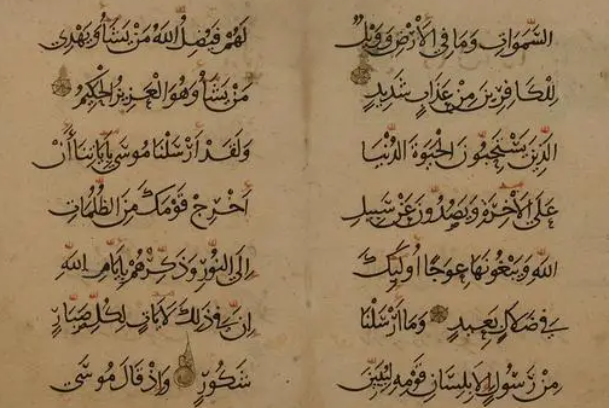 السَّمَوَاتِ وَمَا فِي الْأَرْضِ وَوَيْلٌ
لِلْكَافِرِينَ مِنْ عَذَابٍ شَدِيدٍ
الَّذِينَ يَسْتَحِبُّونَ الْحَيَوةَ الدُّنْيَا
عَلَى الْآخِرَةِ وَيَصُدُّونَ عَنْ سَبِيلِ
اللَّهِ وَيَبْغُونَهَا عِوَجًا أُولَئِكَ
فِي ضَلَالٍ بَعِيدٍ وَمَا أَرْسَلْنَا
مِنْ رَسُولٍ إِلَّا بِلِسَانِ قَوْمِهِ لِيُبَيِّنَ
لَهُمْ فَيُضِلُّ اللَّهُ مَنْ يَشَاءُ وَيَهْدِي
مَنْ يَشَاءُ وَهُوَ الْعَزِيزُ الْحَكِيمُ
وَلَقَدْ أَرْسَلْنَا مُوسَى بِآيَاتِنَا أَنْ
أَخْرِجْ قَوْمَكَ مِنَ الظُّلُمَاتِ
إِلَى النُّورِ وَذَكِّرْهُمْ بِأَيَّامِ اللَّهِ
إِنَّ فِي ذَلِكَ لَآيَاتٍ لِكُلِّ صَبَّارٍ
شَكُورٍ وَإِذْ قَالَ مُوسَى